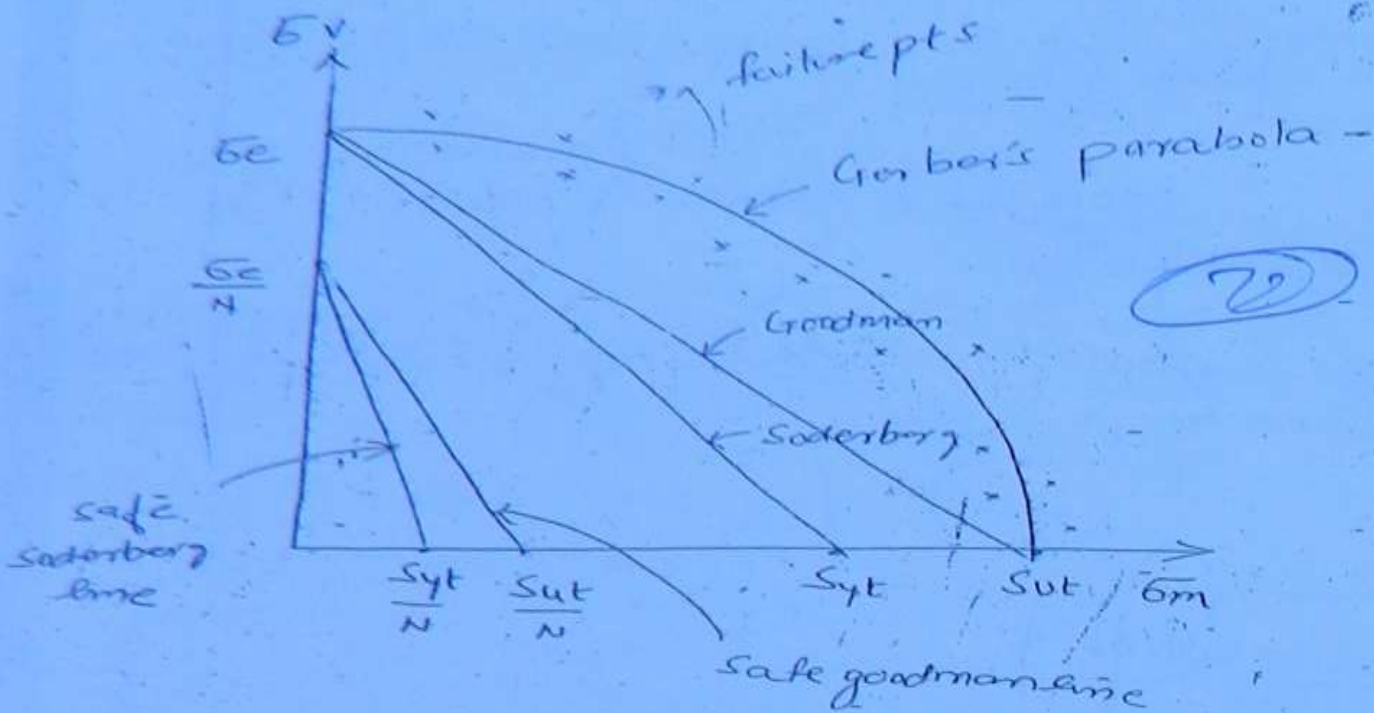 σv
failure pts
Gerber's parabola -
σe
σe
N
Goodman
Soderberg
safe
Soderberg
line
Syt
N
Sut
N
Syt
Sut
σm
safe goodman line